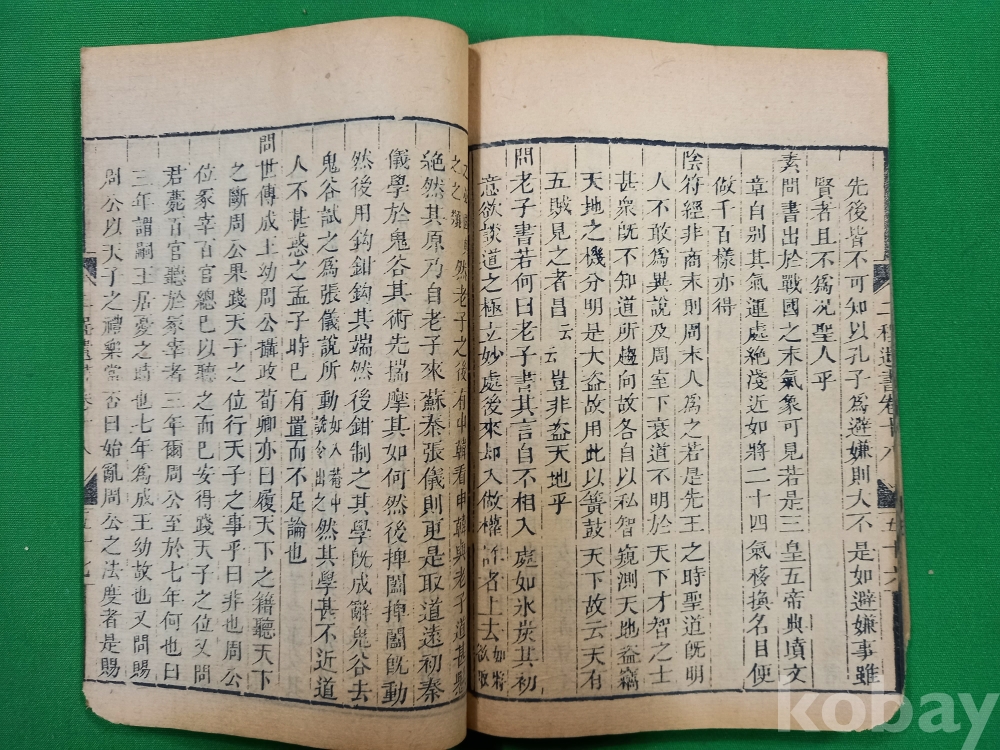 先後皆不可知以孔子為避嫌則大不是如避嫌事雖
賢者且不為况聖人乎
素問書出於戰國之末氣象可見若是三皇五帝典墳文
章自别其氣運處絶淺近如將二十四氣移換名目便
做千百樣亦得
陰符經非商末則周末人為之若是先王之時聖道旣明
人不敢為異說及周室下衰道不明於天下才智之士
甚衆旣不知道所趨向故各自以私智窺測天地盗竊
天地之機分明是大盗故用此以簧鼓天下故云天有
五賊見之者昌云云豈非盗天地乎
問老子書若何曰老子書其言自不相入處如氷炭其初
意欲談道之極玄妙處後來却入做權詐者上去如將欲取
之之類然老子之後有申韓看申韓與老子道甚懸
絶然其原乃自老子來蘇秦張儀則更是取道遠初秦
儀學於鬼谷其術先揣摩其如何然後捭闔捭闔旣動
然後用鈎鉗鈎其端然後鉗制之其學旣成辭鬼谷去
鬼谷試之為張儀說所動如入菴中說令出之然其學甚不近道
人不甚惑之孟子時已有置而不足論也
問世傳成王幼周公攝政荀卿亦曰履天下之籍聽天下
之斷周公果踐天子之位行天子之事乎曰非也周公
位冢宰百官總已以聽之而已安得踐天子之位又問
君薨百官聽於冢宰者三年爾周公至於七年何也曰
三年謂嗣王居憂之時也七年為成王幼故也又問賜
周公以天子之禮樂當否曰始亂周公之法度者是賜
二程遺書卷十八
五十六